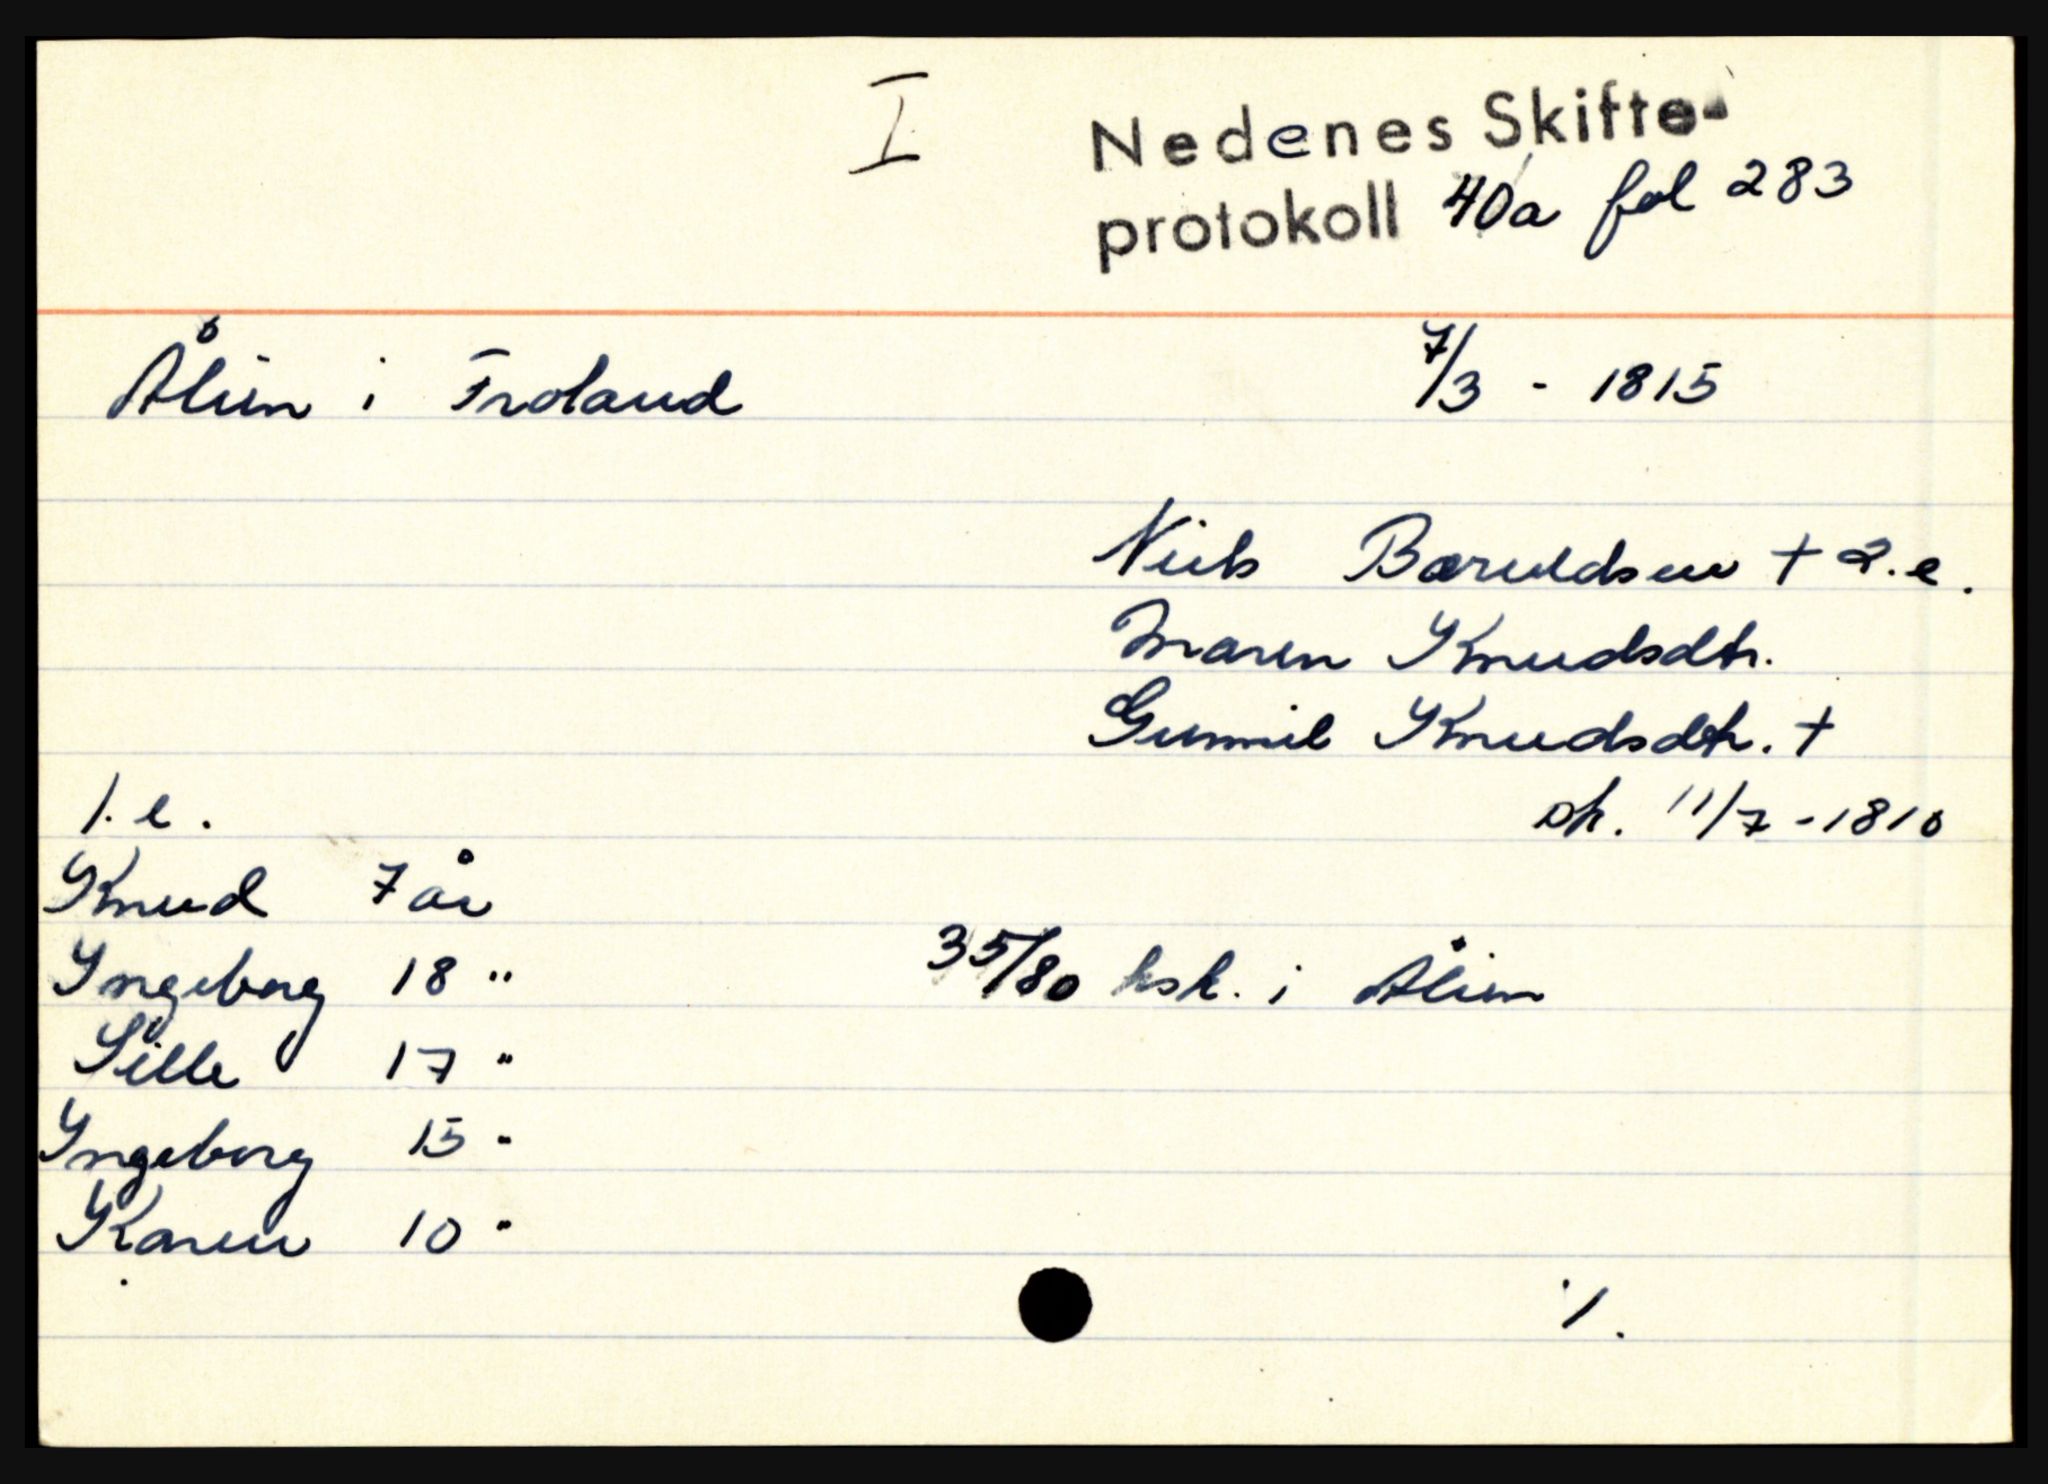 I
Nedenes Skifte-
protokoll 40a fol 283
Ålien i Froland 7/3 - 1815
Niels Bæruldsen + 2. e.
Maren Knudsdtr.
Gunnil Knudsdtr. +
1. e. sk. 11/7 - 1810
Knud 7 år
Ingeborg 18 " 35/80 hsk. i Ålien
Sille 17 "
Ingeborg 15 "
Karen 10 "
·/.